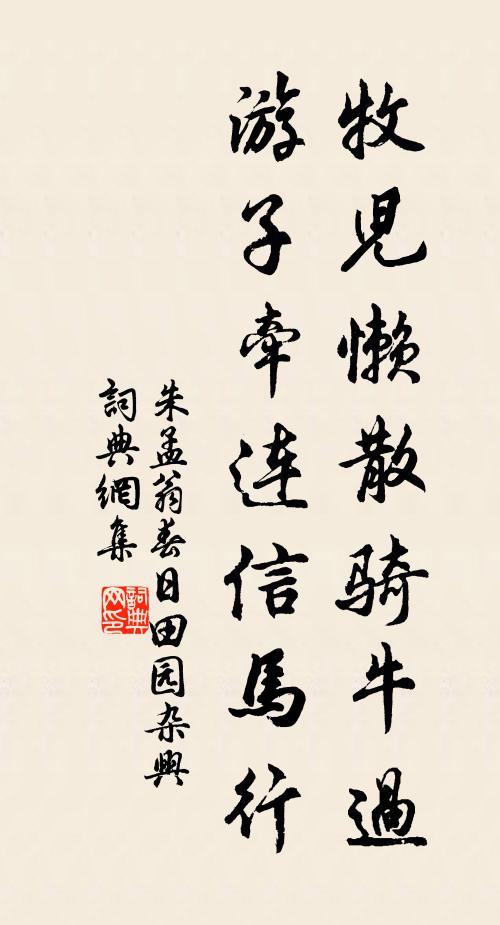 牧児懒散骑牛過
游子牽连信馬行
朱孟翁春日田园杂興
詞典網集
詞典网印